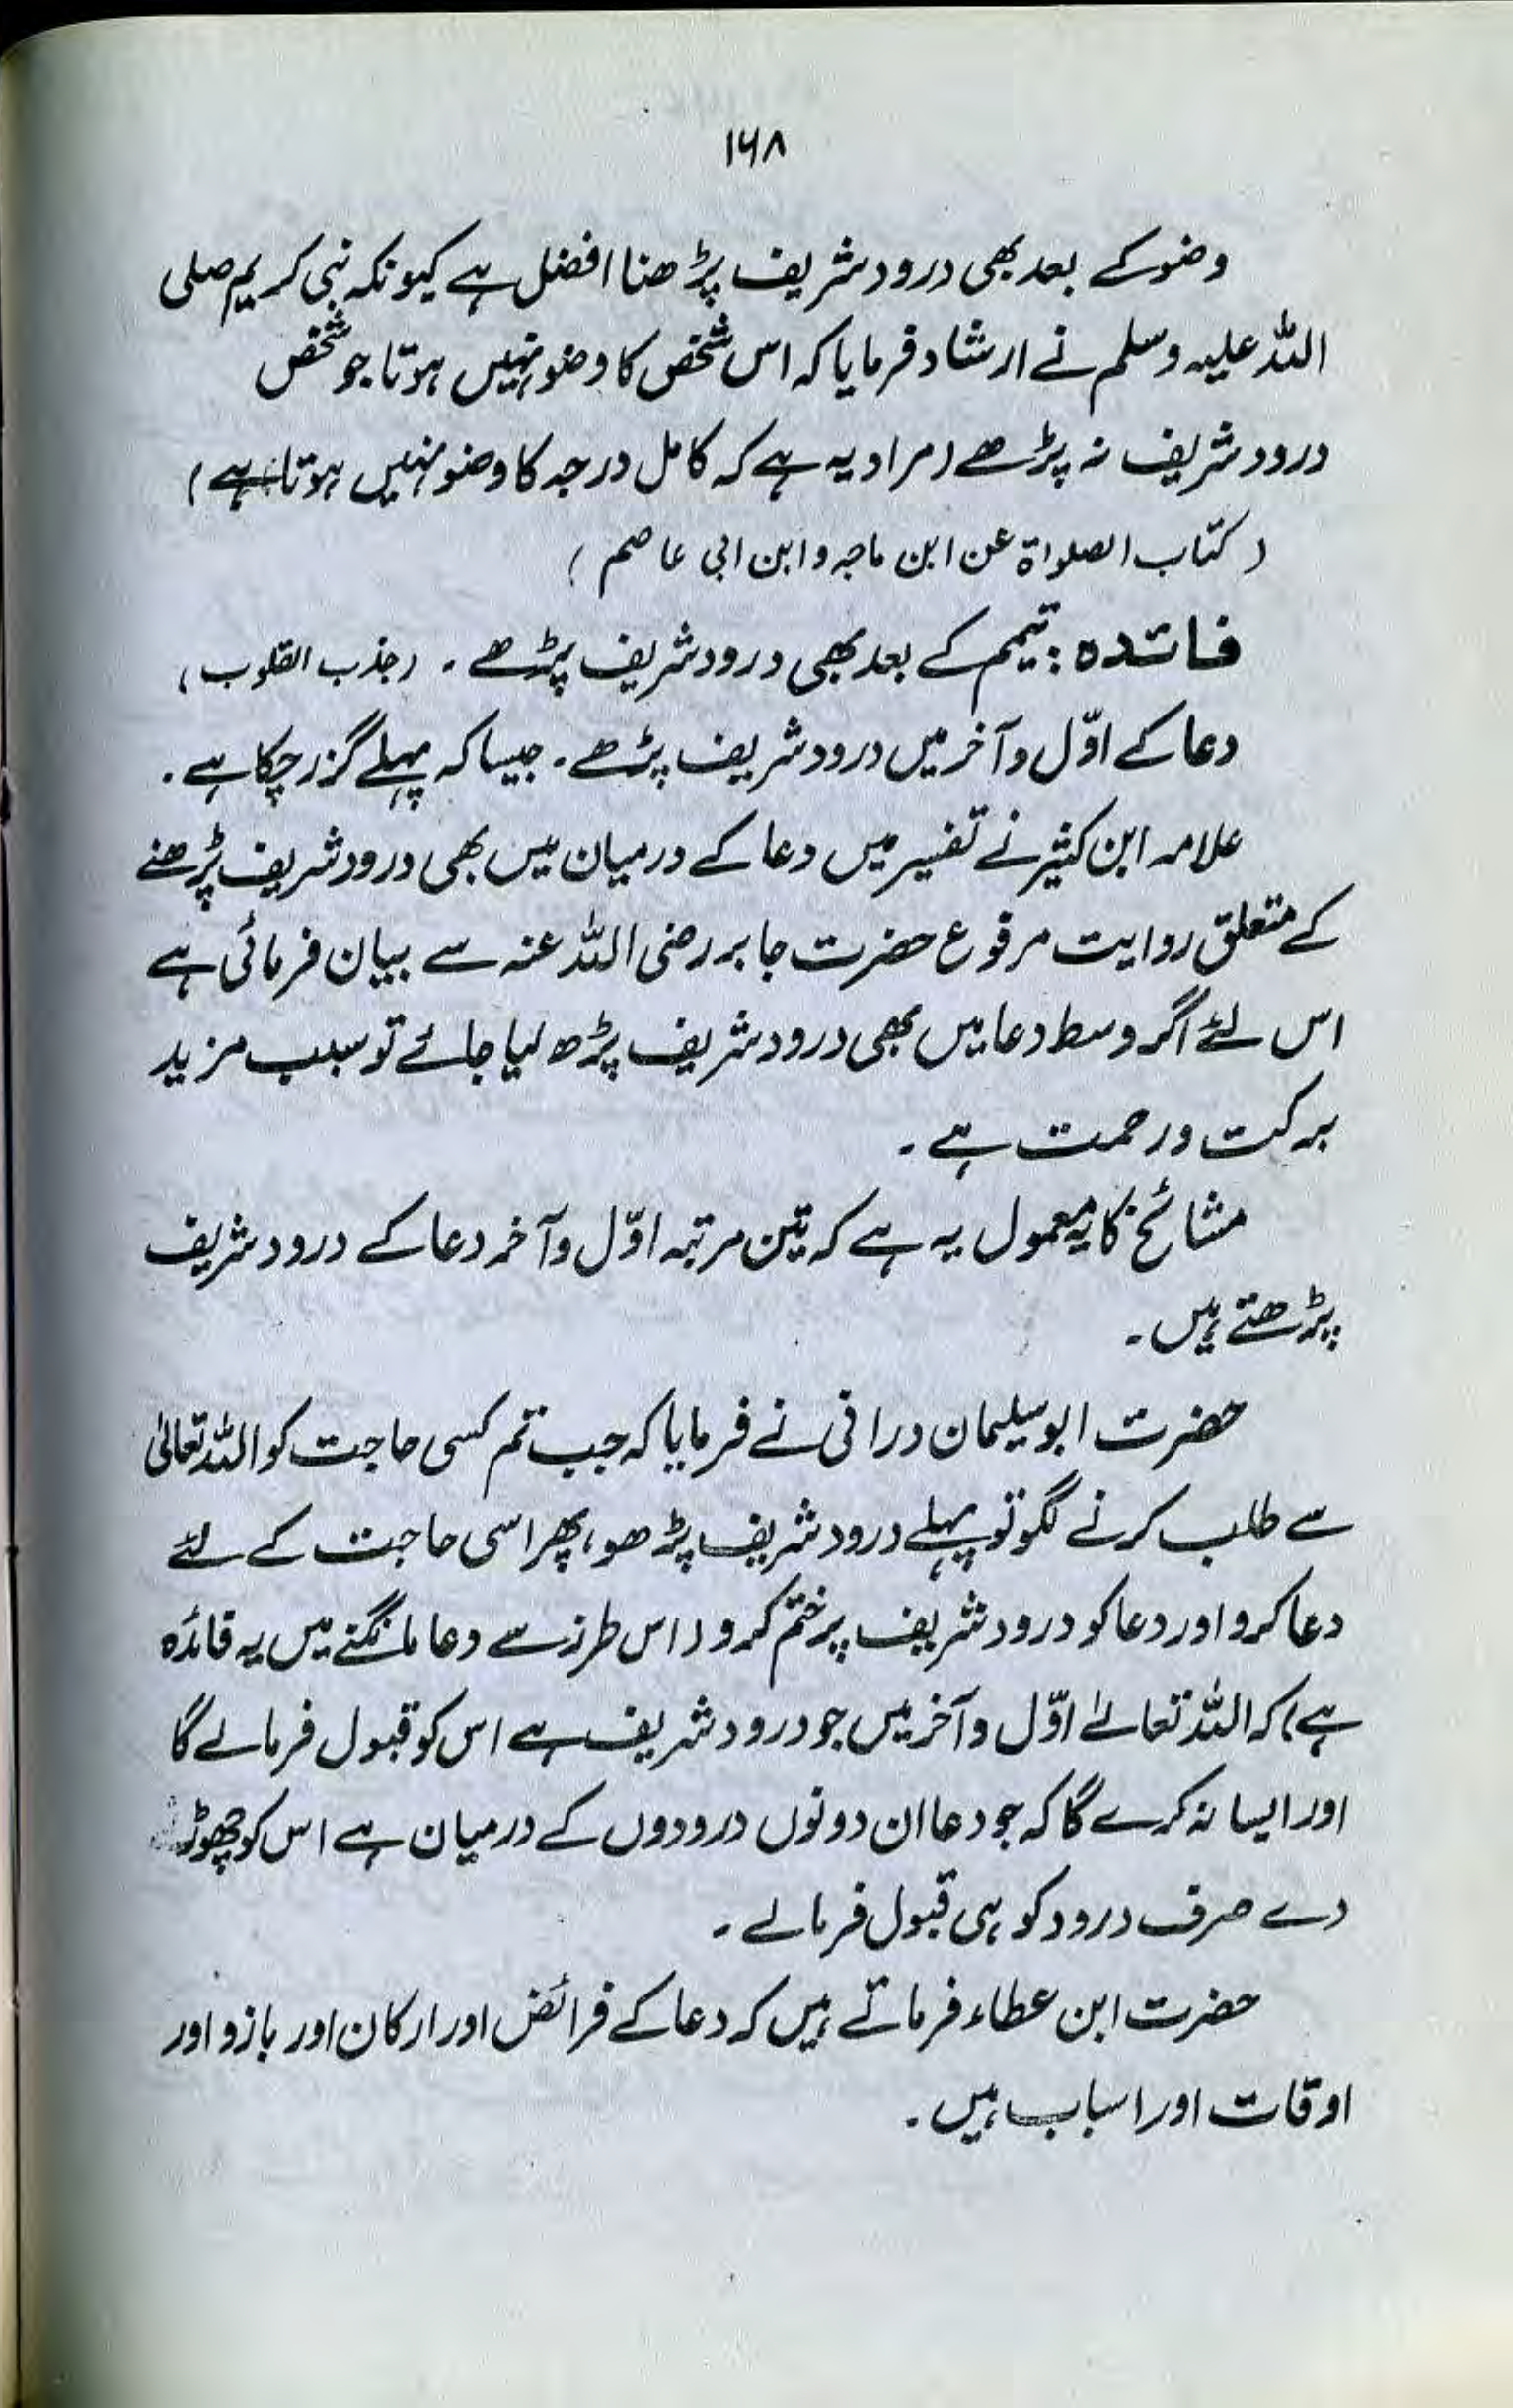 ۱۶۸
وضو کے بعد بھی درود شریف پڑھنا افضل ہے کیونکہ نبی کریم صلی
اللہ علیہ وسلم نے ارشاد فرمایا کہ اس شخص کا وضو نہیں ہوتا جو شخص
درود شریف نہ پڑھے (مراد یہ ہے کہ کامل درجہ کا وضو نہیں ہوتا ہے)
(کتاب الصلواۃ عن ابن ماجہ و ابن ابی عاصم)
فائدہ: تیمم کے بعد بھی درود شریف پڑھے۔ (جذب القلوب)
دعا کے اوّل و آخر میں درود شریف پڑھے۔ جیسا کہ پہلے گزر چکا ہے۔
علامہ ابن کثیر نے تفسیر میں دعا کے درمیان میں بھی درود شریف پڑھنے
کے متعلق روایت مرفوع حضرت جابر رضی اللہ عنہ سے بیان فرمائی ہے
اس لئے اگر وسط دعا میں بھی درود شریف پڑھ لیا جائے تو سبب مزید
برکت و رحمت ہے۔
مشائخ کا یہ معمول یہ ہے کہ تین مرتبہ اوّل و آخر دعا کے درود شریف
پڑھتے ہیں۔
حضرت ابو سلیمان درانی نے فرمایا کہ جب تم کسی حاجت کو اللہ تعالیٰ
سے طلب کرنے لگو تو پہلے درود شریف پڑھو، پھر اسی حاجت کے لئے
دعا کرو اور دعا کو درود شریف پر ختم کرو (اس طرز سے دعا مانگنے میں یہ فائدہ
ہے) کہ اللہ تعالےٰ اوّل و آخر میں جو درود شریف ہے اس کو قبول فرمالے گا
اور ایسا نہ کرے گا کہ جو دعا ان دونوں درودوں کے درمیان ہے اس کو چھوڑ
دے صرف درود کو ہی قبول فرمالے۔
حضرت ابن عطاء فرماتے ہیں کہ دعا کے فرائض اور ارکان اور بازو اور
اوقات اور اسباب ہیں۔